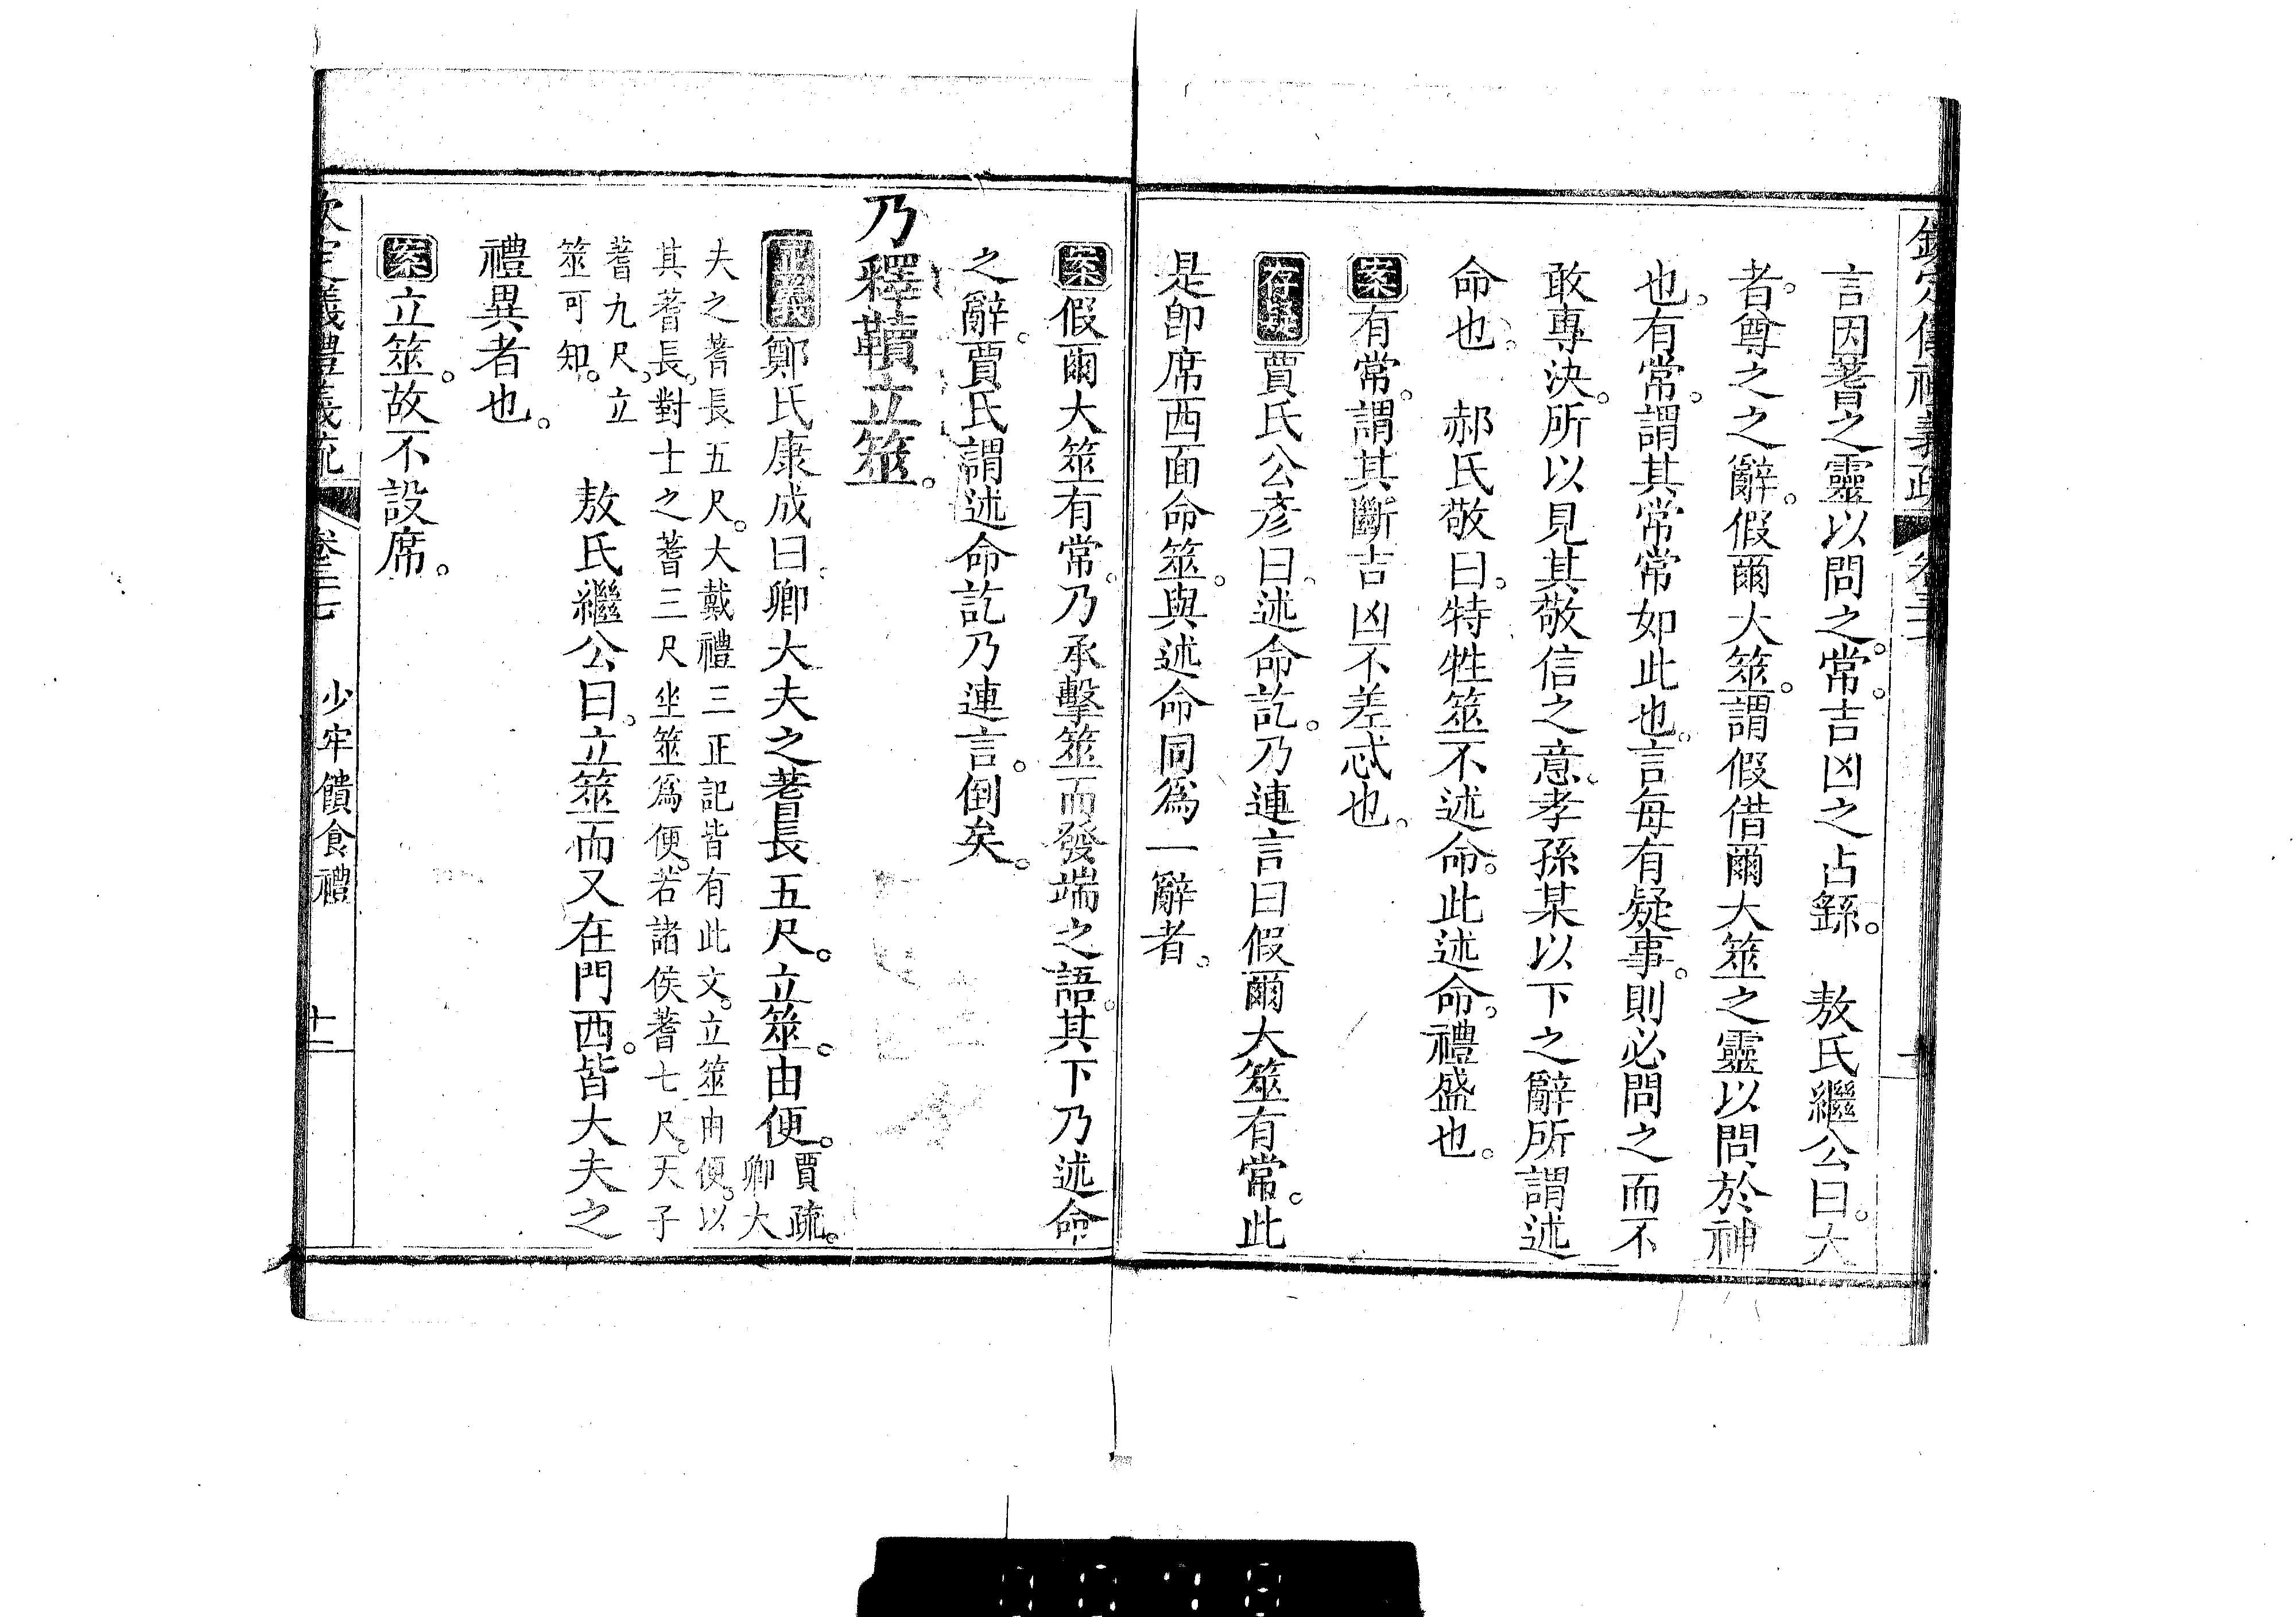 言因蓍之靈以問之。常。吉凶之占繇。　敖氏繼公曰。大
者。尊之之辭。假爾大筮。謂假借爾大筮之靈以問於神
也。有常。謂其常常如此也。言每有疑事。則必問之而不
敢專決。所以見其敬信之意。孝孫某以下之辭所謂述
命也。　郝氏敬曰。特牲筮不述命。此述命。禮盛也。
案有常。謂其斷吉凶不差忒也。
存疑賈氏公彥曰。述命訖。乃連言曰假爾大筮有常。此
是即席西面命筮。與述命同為一辭者。
案假爾大筮有常。乃承擊筮而發端之語。其下乃述命
之辭。賈氏謂述命訖乃連言。倒矣。
乃釋韇立筮。
正義鄭氏康成曰。卿大夫之蓍長五尺。立筮。由便。賈疏。卿大
夫之蓍長五尺。大戴禮三正記皆有此文。立筮由便。以
其蓍長。對士之蓍三尺坐筮為便。若諸侯蓍七尺。天子
蓍九尺。立
筮可知。　敖氏繼公曰。立筮而又在門西。皆大夫之
禮異者也。
案立筮。故不設席。
欽定儀禮義疏　卷三十七　少牢饋食禮　十二